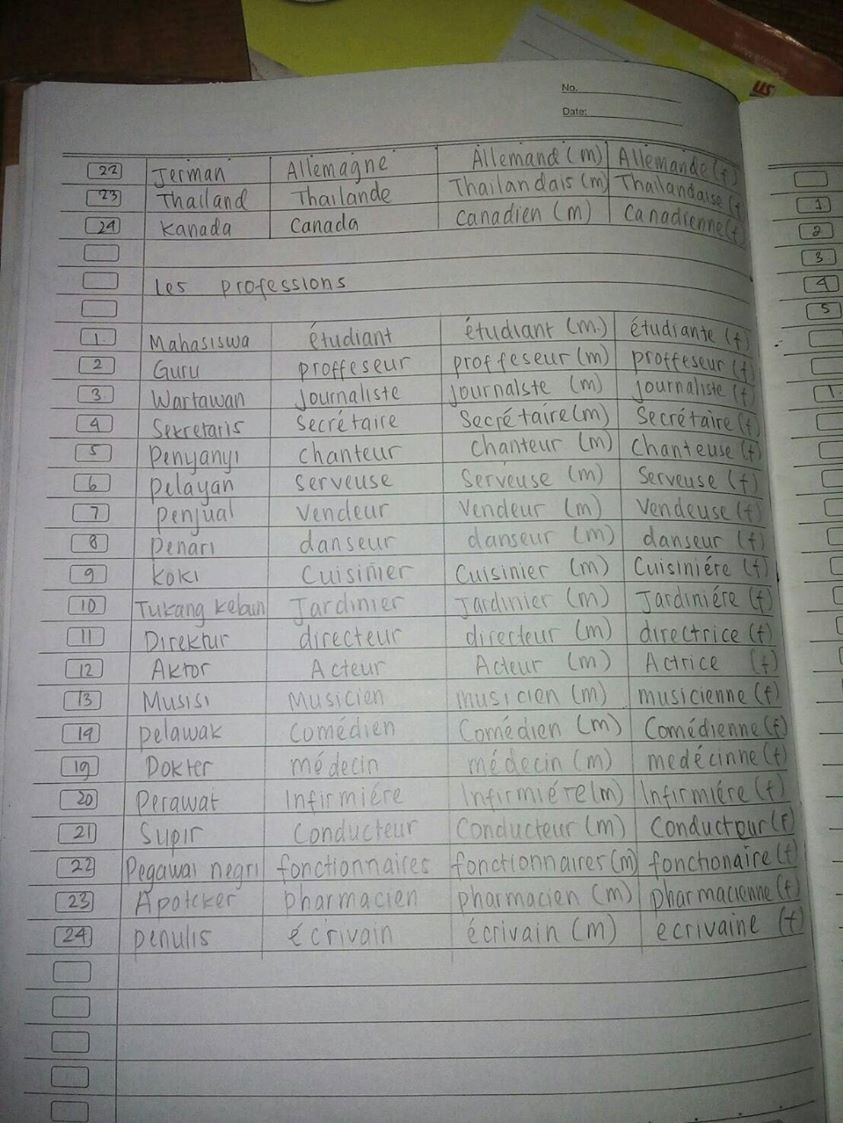 No.
Date:
22 Jerman Allemagne Allemand (m) Allemande (f)
23 Thailand Thailande Thailandais (m) Thailandaise (f)
24 Kanada Canada Canadien (m) Canadienne (f)
Les professions
1. Mahasiswa étudiant étudiant (m.) étudiante (f)
2 Guru proffeseur proffeseur (m) proffeseur (f)
3. Wartawan journaliste journalste (m) journaliste (f)
4 Sekretaris Secrétaire Secrétaire (m) Secrétaire (f)
5 Penyanyi chanteur chanteur (m) Chanteuse (f)
6 Pelayan Serveuse Serveuse (m) Serveuse (f)
7 Penjual Vendeur Vendeur (m) Vendeuse (f)
8 Penari danseur danseur (m) danseur (f)
9 koki Cuisinier Cuisinier (m) Cuisiniére (f)
10 Tukang kebun Jardinier Jardinier (m) Jardiniére (f)
11 Direktur directeur directeur (m) directrice (f)
12 Aktor Acteur Acteur (m) Actrice (f)
13 Musisi Musicien musicien (m) musicienne (f)
14 pelawak Comédien Comédien (m) Comédienne (f)
19 Dokter médecin médecin (m) medécinne (f)
20 Perawat Infirmiére Infirmiére (m) Infirmiére (f)
21 Supir Conducteur Conducteur (m) (f)
22 Pegawai negri fonctionnaires fonctionnaires (m) fonctionaire (f)
23 Apoteker pharmacien pharmacien (m) pharmacienne (f)
24 penulis écrivain écrivain (m) ecrivaine (f)
1
2
3
4
5
1.